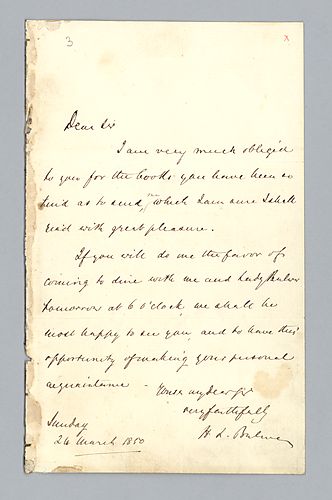 3
x
Dear Sir
I am very much obliged
to you for the books you have been so
kind as to send, which I am sure I shall
read with great pleasure.
If you will do me the favor of
coming to dine with me and Lady Bulwer
tomorrow at 6 o'clock, we shall be
most happy to see you, and to have this
opportunity of making your personal
acquaintance -
Yours my dear Sir
very faithfully
H. L. Bulwer
Sunday
24 March 1850